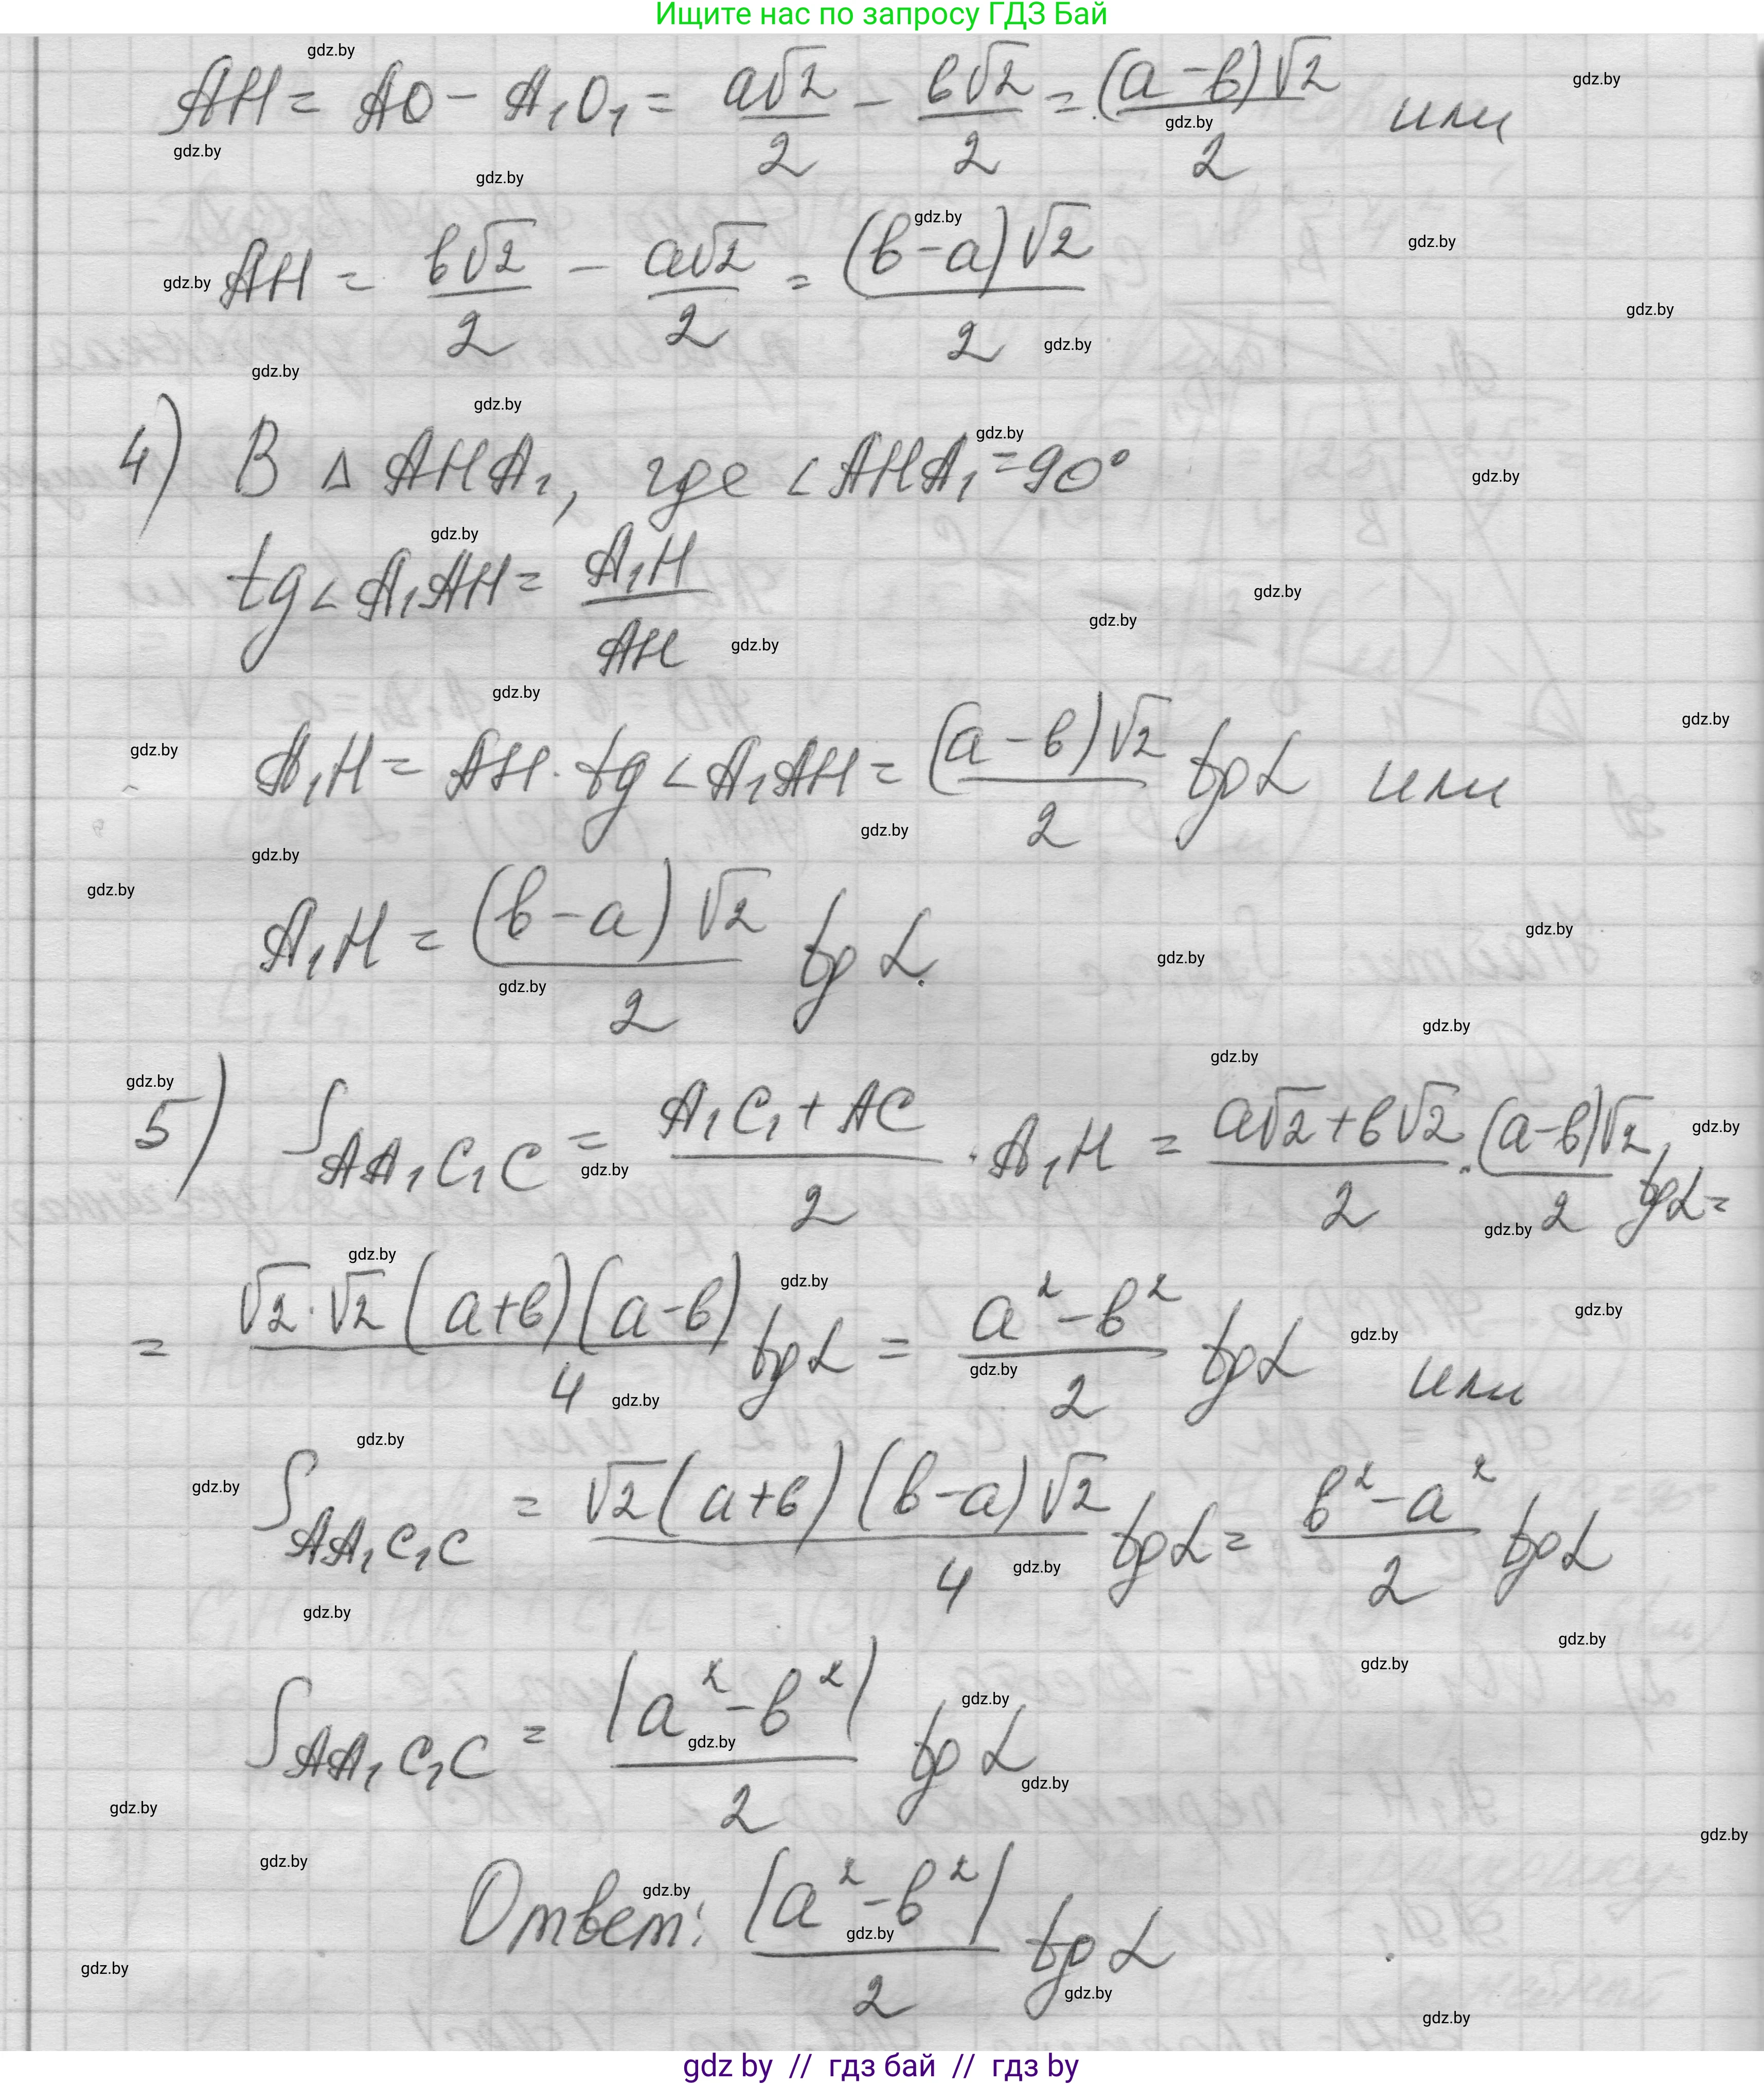 Ищите нас по запросу ГДЗ Бай
AH = AO - A₁O₁ = a√2/2 - b√2/2 = (a-b)√2/2 или
AH = b√2/2 - a√2/2 = (b-a)√2/2
4) В Δ AHA₁, где ∠AHA₁ = 90°
tg∠A₁AH = A₁H/AH
A₁H = AH · tg∠A₁AH = (a-b)√2/2 tgα или
A₁H = (b-a)√2/2 tgα.
5) S_AA₁C₁C = (A₁C₁ + AC)/2 · A₁H = (a√2 + b√2)/2 · (a-b)√2/2 tgα =
= √2·√2(a+b)(a-b)/4 tgα = (a²-b²)/2 tgα или
S_AA₁C₁C = √2(a+b)(b-a)√2/4 tgα = (b²-a²)/2 tgα
S_AA₁C₁C = |a²-b²|/2 tgα
Ответ: |a²-b²|/2 tgα
gdz by // гдз бай // гдз by